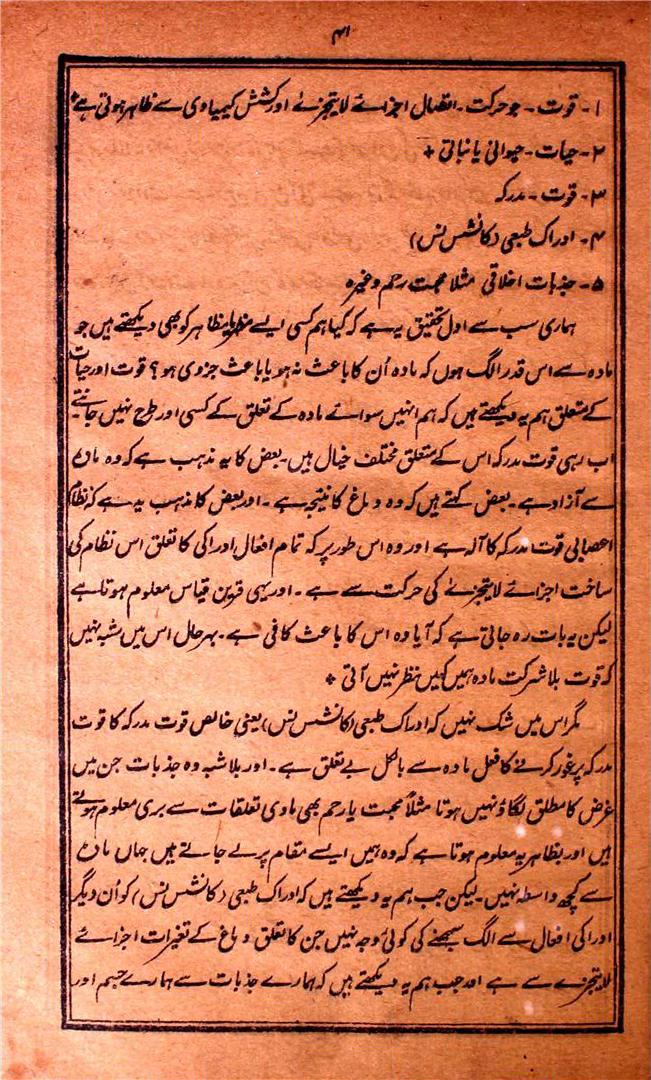 ۴۱
۱- قوت - جو حرکت - اتصال اجزائے لایتجزے اور کشش کیمیاوی سے ظاہر ہوتی ہے +
۲- حیات - حیوانی یا نباتی +
۳- قوت - مدرکہ
۴- ادراک طبعی (کانشس نس)
۵- جذبات اخلاقی مثلاً محبت رحم وغیرہ
ہماری سب سے اول تحقیق یہ ہے کہ کیا ہم کسی ایسے مظاہر کو بھی دیکھتے ہیں جو
مادہ سے اس قدر الگ ہوں کہ مادہ اُن کا باعث نہ ہو یا باعث جزوی ہو؟ قوت اور حیات
کے متعلق ہم یہ دیکھتے ہیں کہ ہم انہیں سوائے مادہ کے تعلق کے کسی اور طرح نہیں جانتے۔
اب رہی قوت مدرکہ اس کے متعلق مختلف خیال ہیں۔ بعض کا یہ مذہب ہے کہ وہ مادہ
سے آزاد ہے۔ بعض کہتے ہیں کہ وہ دماغ کا نتیجہ ہے۔ اور بعض کا مذہب یہ ہے کہ نظام
اعصابی قوت مدرکہ کا آلہ ہے اور وہ اس طور پر کہ تمام افعال ادراکی کا تعلق اس نظام کی
ساخت اجزائے لایتجزے کی حرکت سے ہے۔ اور یہی قرین قیاس معلوم ہوتا ہے
لیکن یہ بات رہ جاتی ہے کہ آیا وہ اس کا باعث کافی ہے۔ بہرحال اس میں شبہ نہیں
کہ قوت بلا شرکت مادہ ہمیں کہیں نظر نہیں آتی +
مگر اس میں شک نہیں کہ ادراک طبعی (کانشس نس) یعنی خالص قوت مدرکہ کا قوت
مدرکہ پر غور کرنے کا فعل مادہ سے بالکل بے تعلق ہے۔ اور بلاشبہ وہ جذبات جن میں
غرض کا مطلق لگاؤ نہیں ہوتا مثلاً محبت یا رحم بھی مادی تعلقات سے بری معلوم ہوتے
ہیں اور بظاہر یہ معلوم ہوتا ہے کہ وہ ہمیں ایسے مقام پر لے جاتے ہیں جہاں مادہ
سے کچھ واسطہ نہیں۔ لیکن جب ہم یہ دیکھتے ہیں کہ ادراک طبعی (کانشس نس) کو اُن دیگر
ادراکی افعال سے الگ سمجھنے کی کوئی وجہ نہیں جن کا تعلق دماغ کے تغیرات اجزائے
لایتجزے سے ہے اور جب ہم یہ دیکھتے ہیں کہ ہمارے جذبات سے ہمارے جسم اور